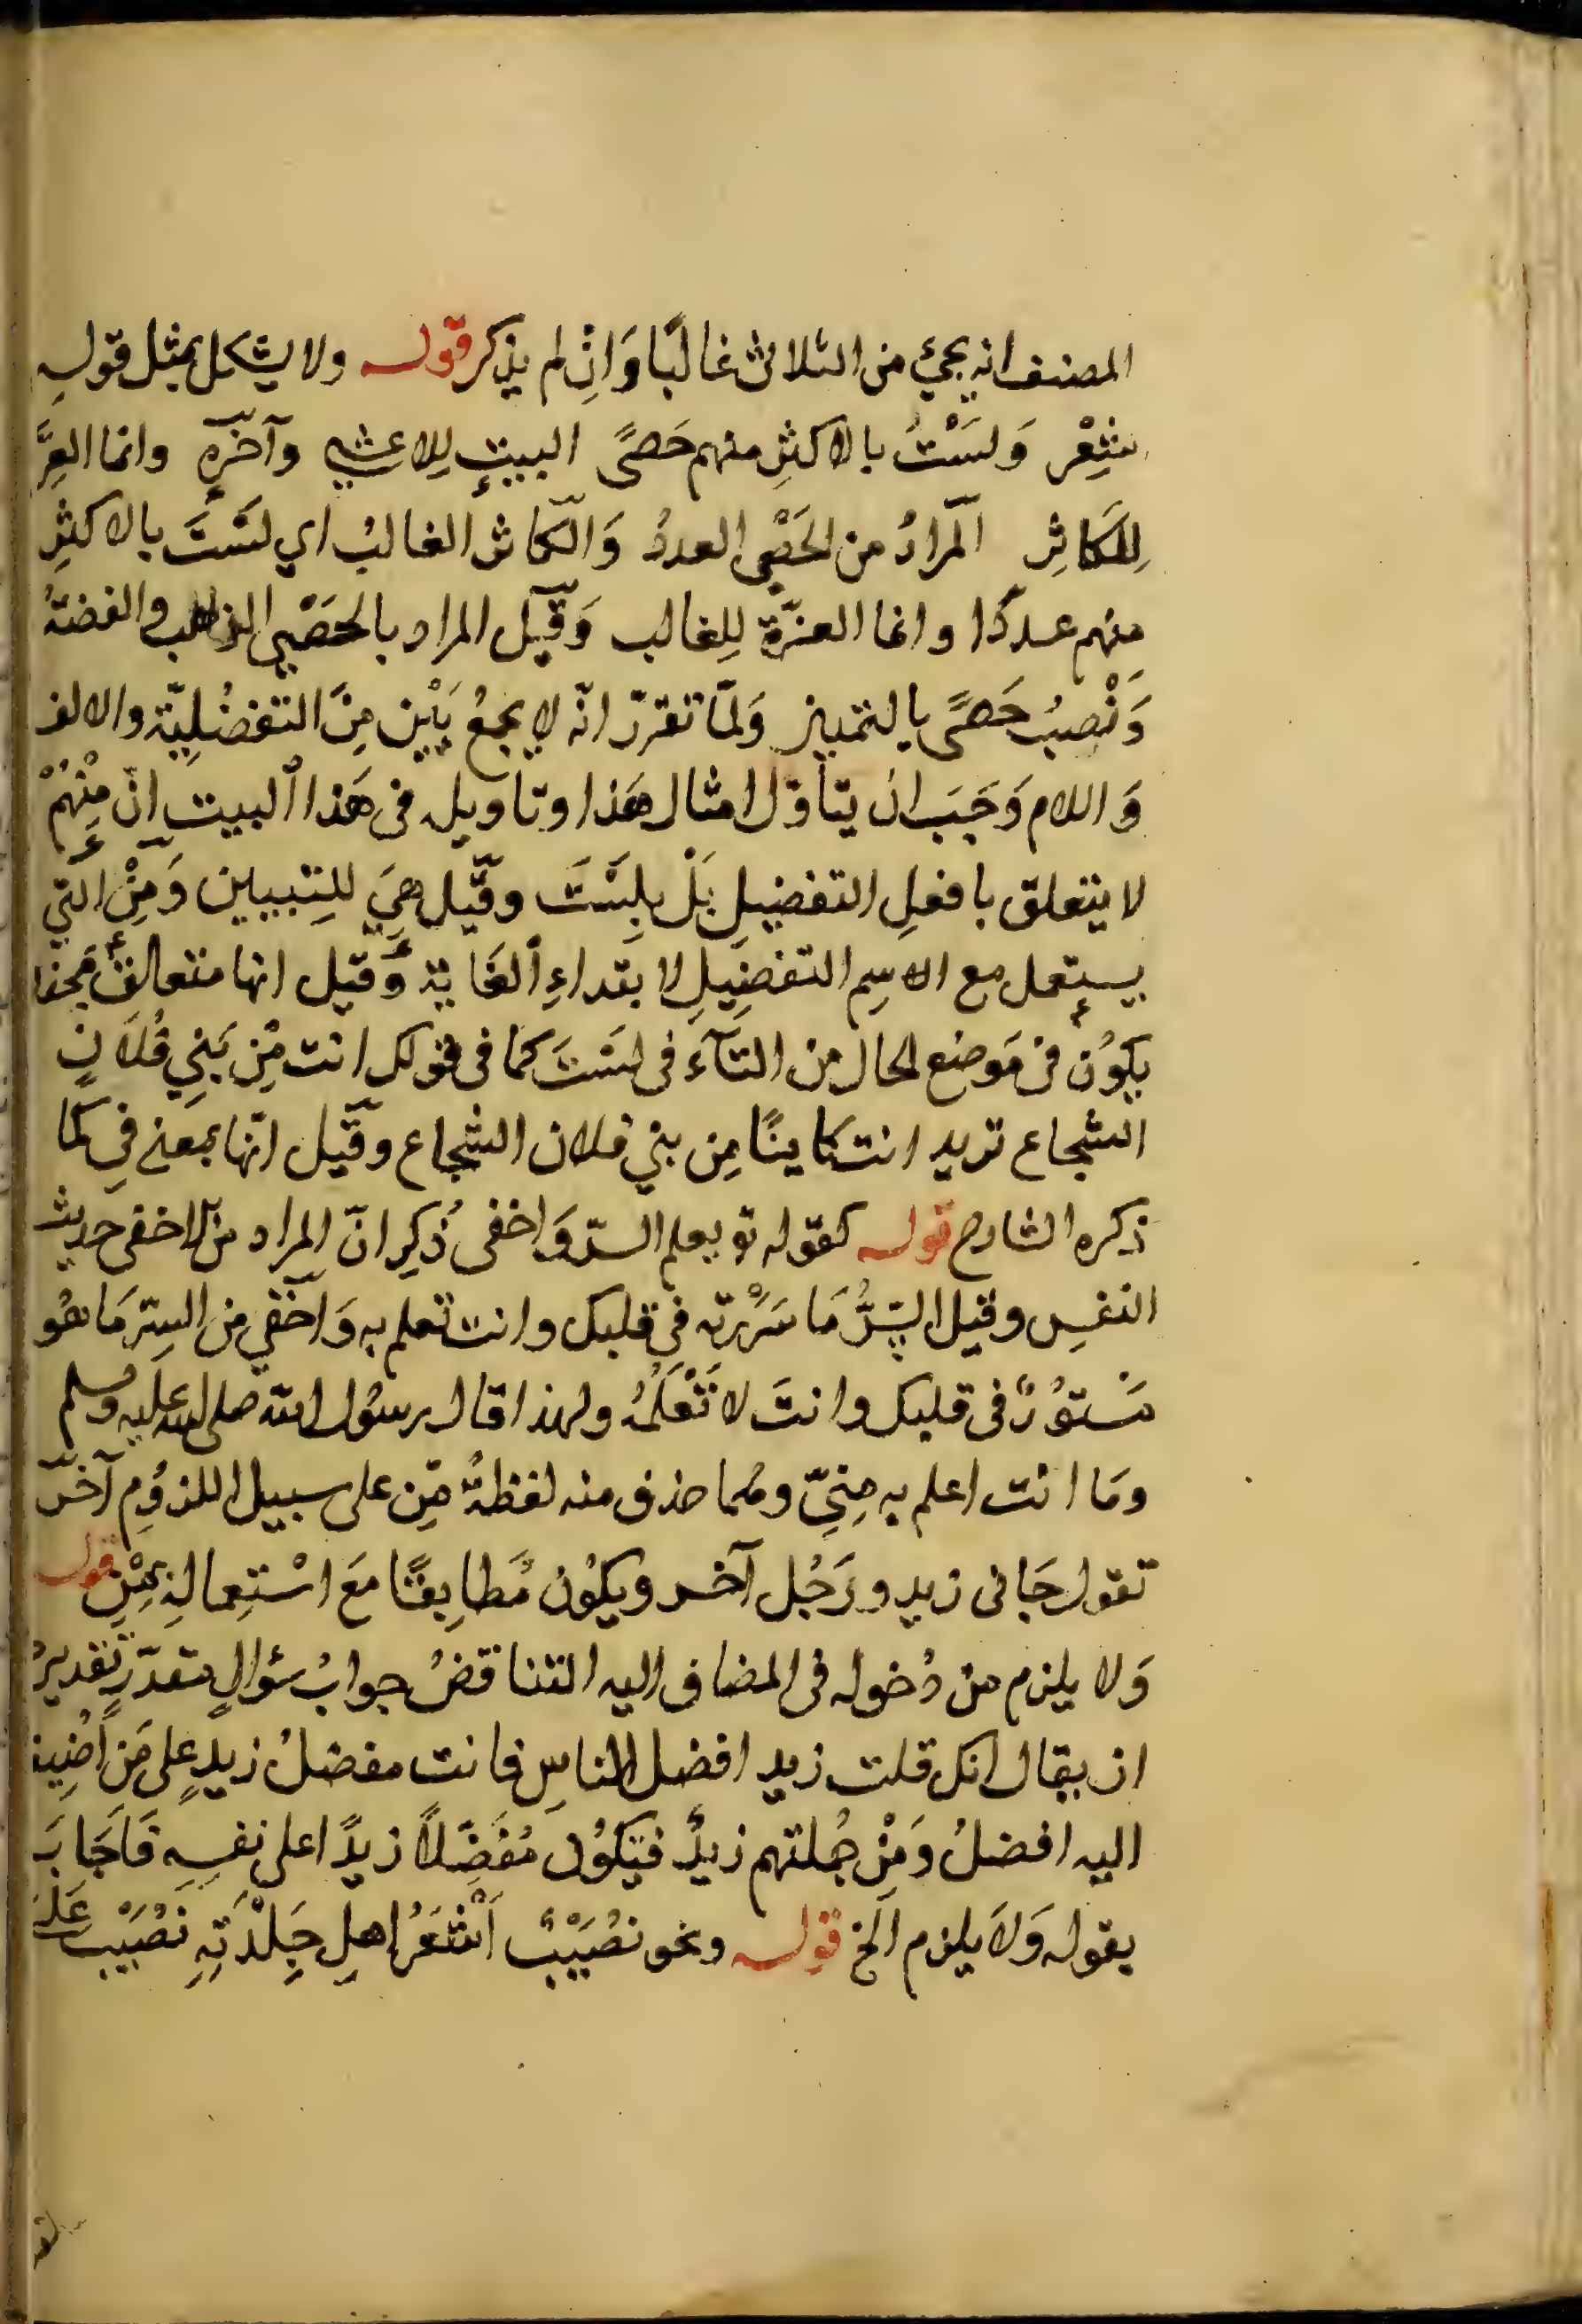 المصنف انه يجئ من الثلاث غالبًا وَانِ لم يذكر قوله ولا يشكل بمثل قولهِ
شِعْر وَلسَتُ بالاكثرِ منهم حَصىً البيتِ لِلاعشى وآخره وانما العِزَّ
لِلكاثِر المرادُ من الحَصْى العددُ وَالكاثر الغالبُ اي لسَتَ بالاكثرِ
منهم عددًا وانما العزّة لِلغالب وَقيل المراد بالحَصْى الذهب والفضةُ
وَنْصبُ حَصىً بالتمييز وَلمّا تقررّ انّه لا يجمعُ بَيْن مِنَ التفضُليّة والالف
وَاللام وَجَبَ ان يتأوّل امثال هَذا وتاويله فى هَذا البيت انّ مِنْهُمْ
لا يتعلق بافعلِ التفضيلِ بَلْ بلِسَتَ وقيل هِيَ للِتبيين وَمِنْ التي
يستعمل مع الاسِم التفضِيلِ لابتداءِ الغَاية وَقيل انها متعالق بمحذ
يكوُن فى مَوضع الحال من التآءَ فى لسَتَ كما فى قولك انت مِن بَنِي فُلَانٍ
الشجاع تريد انت كاينًا مِن بني فلان الشجاع وقيل انّها بمعنى فِى كما
ذكره الشارح قوله كقوله تع يعلم السرّ وَاخفى ذُكِر انّ المراد من الاخفى حديث
النفسِ وقيل السِرُّ مَا سَرْرته فى قلبك وانت تعلم به وَآخفي من السِرّ مَا هُو
مَسْتوُرٌ فى قلبك وانتَ لا تَعْلَمُهُ ولهذا قال رسوُل الله صلى الله عليه وسلم
ومَا انت اعلم به مِنِيّ ومُما حذف منه لفظةُ مِّن على سبيل اللزوُمِ آخر
تقول جَانى زيد ورَجُل آخر ويكوُن مُطابِقًا مَعَ اسْتِعمالِهِ بمِنْ قوله
وَلا يلزم من دُخوله فى المضاف اليه التناقضُ جوابُ سُؤالٍ مقدّرٍ تقديرُ
ان يقال انك قلت زيد افضل الناسِ فانت مفضلُ زيدٍ على مَن اُضِيف
اليه افضلُ وَمِنْ جُملتهم زيدٌ فتيكوُن مُفَضِّلاً زيدًا على نفسِهِ فَاَجَابَ
بقوله وَلَا يلزم الخ قوله ونحو نصُيَبٌ اَشْعَرُ اهلِ جِلْدَتِهِ نصُيَبْ عَلى